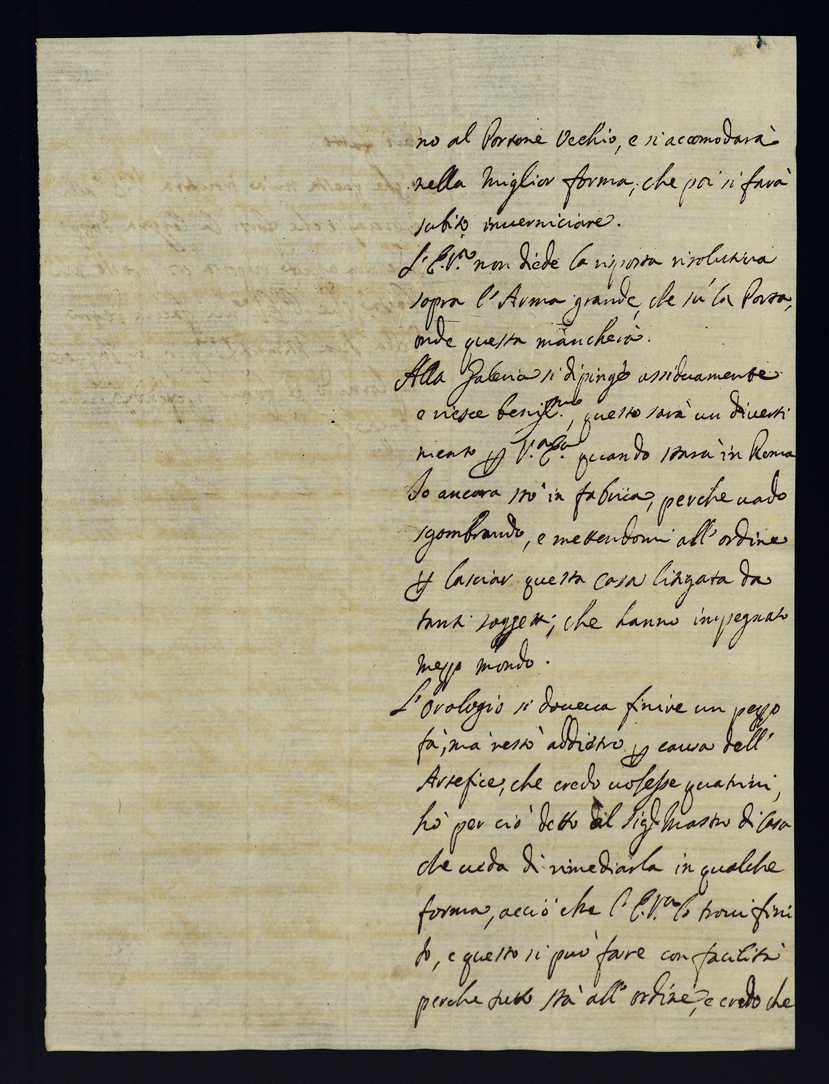 no al Portone Vechio, e si accomodarà
nella miglior forma, che poi si farà
subito inverniciare.
L'E.V.ra non diede la risposta risolutiva
sopra l'Arma grande, che sù la Porta,
onde questa mancherà.
Alla Galeria si dipinge assiduamente
e riesce benis.mo, questo sarà un diverti
mento p V.ra E.za quando starà in Roma
Io ancora stò in fabrica, perche vado
sgombrando, e mettendomi all'ordine
p lasciar questa casa litigata da
tanti soggetti, che hanno impegnato
mezzo mondo.
L'orologio si doveva finire un pezzo
fà, ma restò addietro p causa dell'
Artefice, che credo volesse quatrini,
hò per ciò detto al Sig.r Mastro di Casa
che veda di rimediarla in qualche
forma, acciò che l'E.V.ra lo trovi fini
to, e questo si può fare con facilità
perche tutto stà all'ordine, e credo che